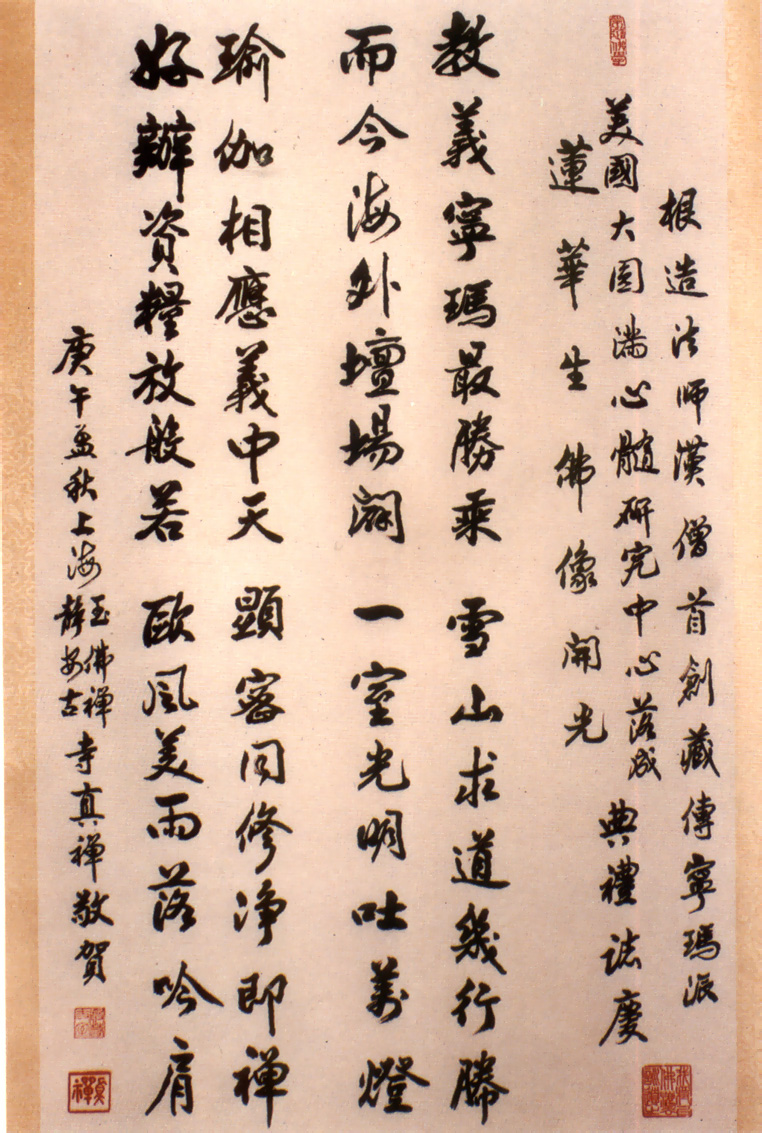 根造法师漢僧首創藏傳寧瑪派
美國大圓滿心髓研究中心落成典禮誌慶
蓮華生佛像開光
教義寧瑪最勝乘 雪山求道幾行勝
而今海外壇場闢 一室光明吐萬燈
瑜伽相應義中天 顯密同修淨即禪
好辦資糧放般若 歐風美雨落吟肩
庚午孟秋上海玉佛禪靜安古寺真禪敬賀
真禪